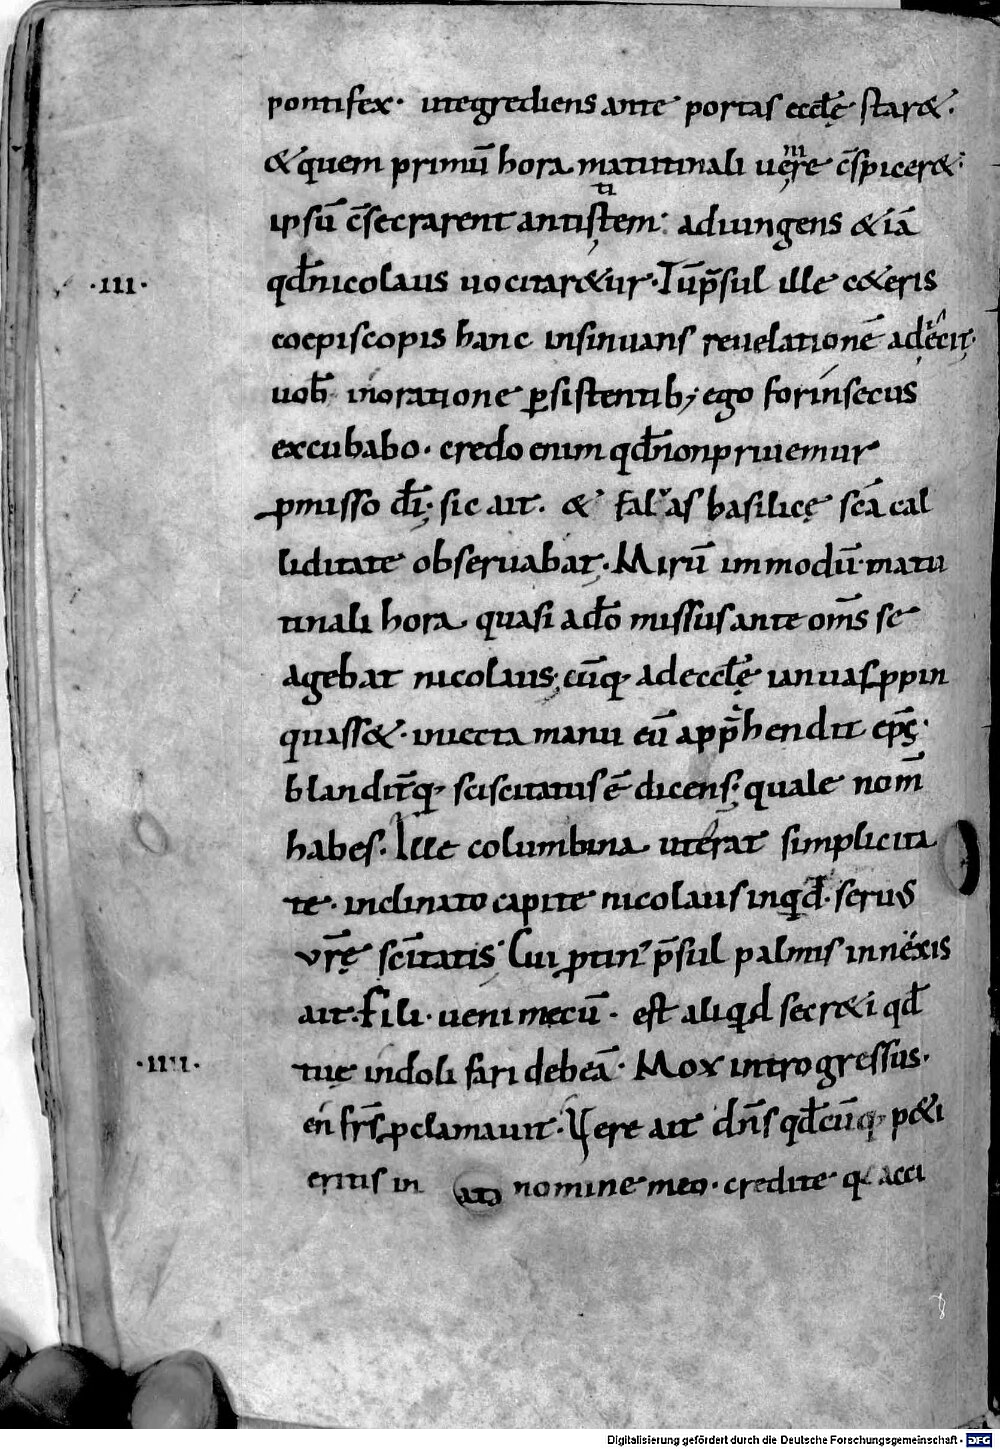 pontifex· utegrediens ante portas eccłę star&·
& quem primū hora matutinali uenire c̄spicer&·
ipsū c̄secrarent antistitem: adiungens & iā
qđ nicolaus uocitar&ur· Tū p̄sul ille c&eris
·III·
coepiscopis hanc insinuans reuelationē adiecit·
uoƀ inoratione p̱sistentib; ego forinsecus
excubabo· credo enim qđ nonpriuemur
p̱misso dī· sic ait· & fal as basilicę scā cal
liditate obseruabat· Mirū immodū· matu
tinali hora quasi ado missus ante om̄s se
agebat nicolaus, cūq· ad eccłę ianuas p̱pin
quass&· iniecta manu eū app̄hendit ep̄s·
bland̄itq· sciscitatus ē dicens· quale nom̄
habes· Ille columbina uterat simplicita
te· inclinato capite nicolaus inqđ· seruus
vr̄ę sc̄itatis· Cui p̱tin p̄sul palmis innexis
ait· Fili· ueni mecū· est aliqđ secr&i qđ
tuę indoli fari debeā· Mox introgressus·
·IIII·
en frs̄ p̱clamauit· Vere ait dn̄s qđcūq· p&i
eritis in nomine meo· credite q acci
Digitalisierung gefördert durch die Deutsche Forschungsgemeinschaft - DFG